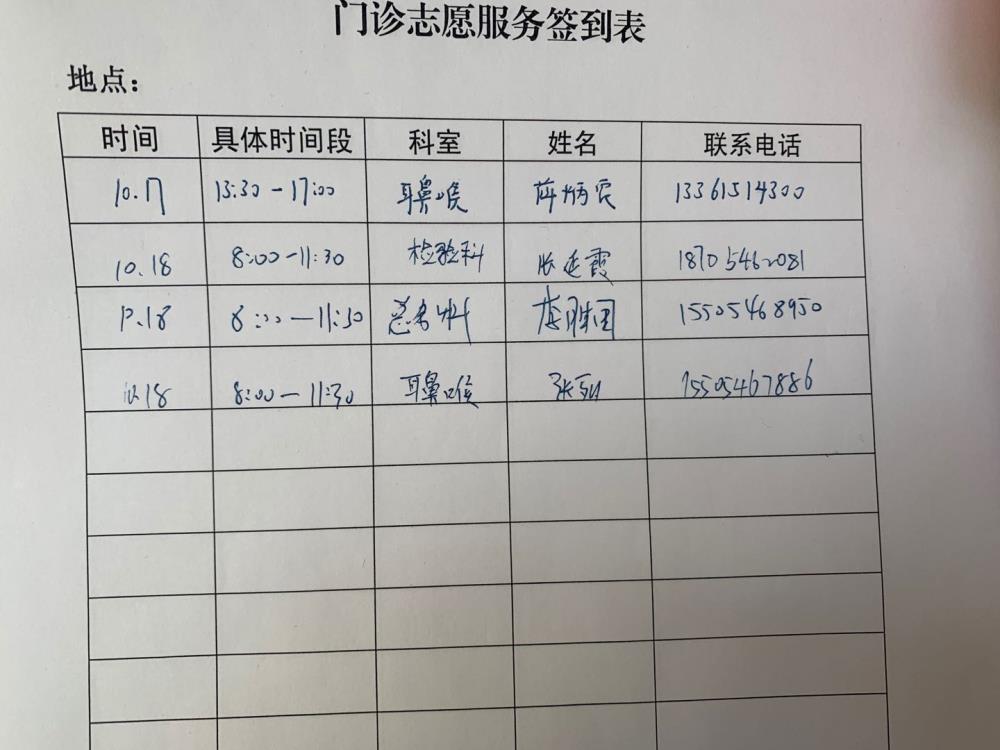 门诊志愿服务签到表
地点：
时间 具体时间段 科室 姓名 联系电话
10.17 13:30-17:00 耳鼻喉 13361514300
10.18 8:00-11:30 检验科 张延霞 18705462081
10.18 8:00-11:30 15505468950
10.18 8:00-11:30 耳鼻喉 15505467886